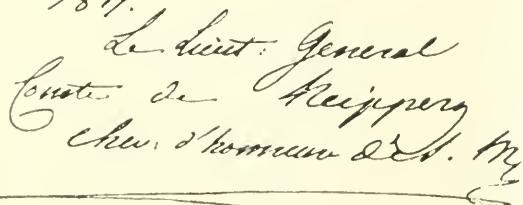 Le Lieut: General
Comte de Neipperg
chev. d'honneur de S. M